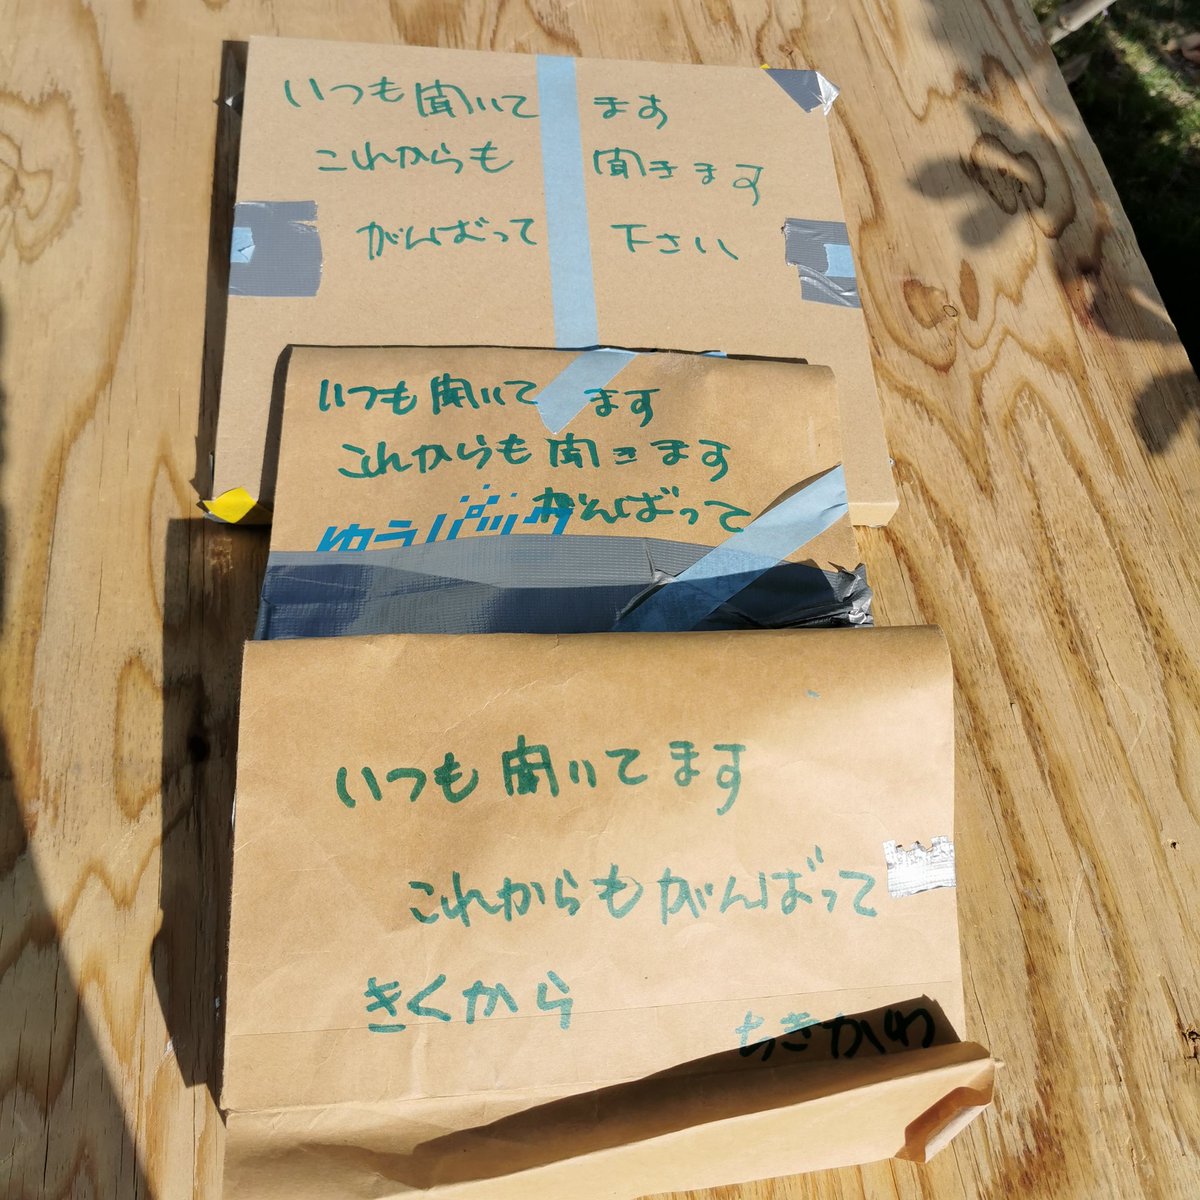 いつも聞いてます
これからも聞きます
がんばって下さい
いつも聞いてます
これからも聞きます
がんばって
ゆうパック
いつも聞いてます
これからもがんばって
きくから
ちきかわ